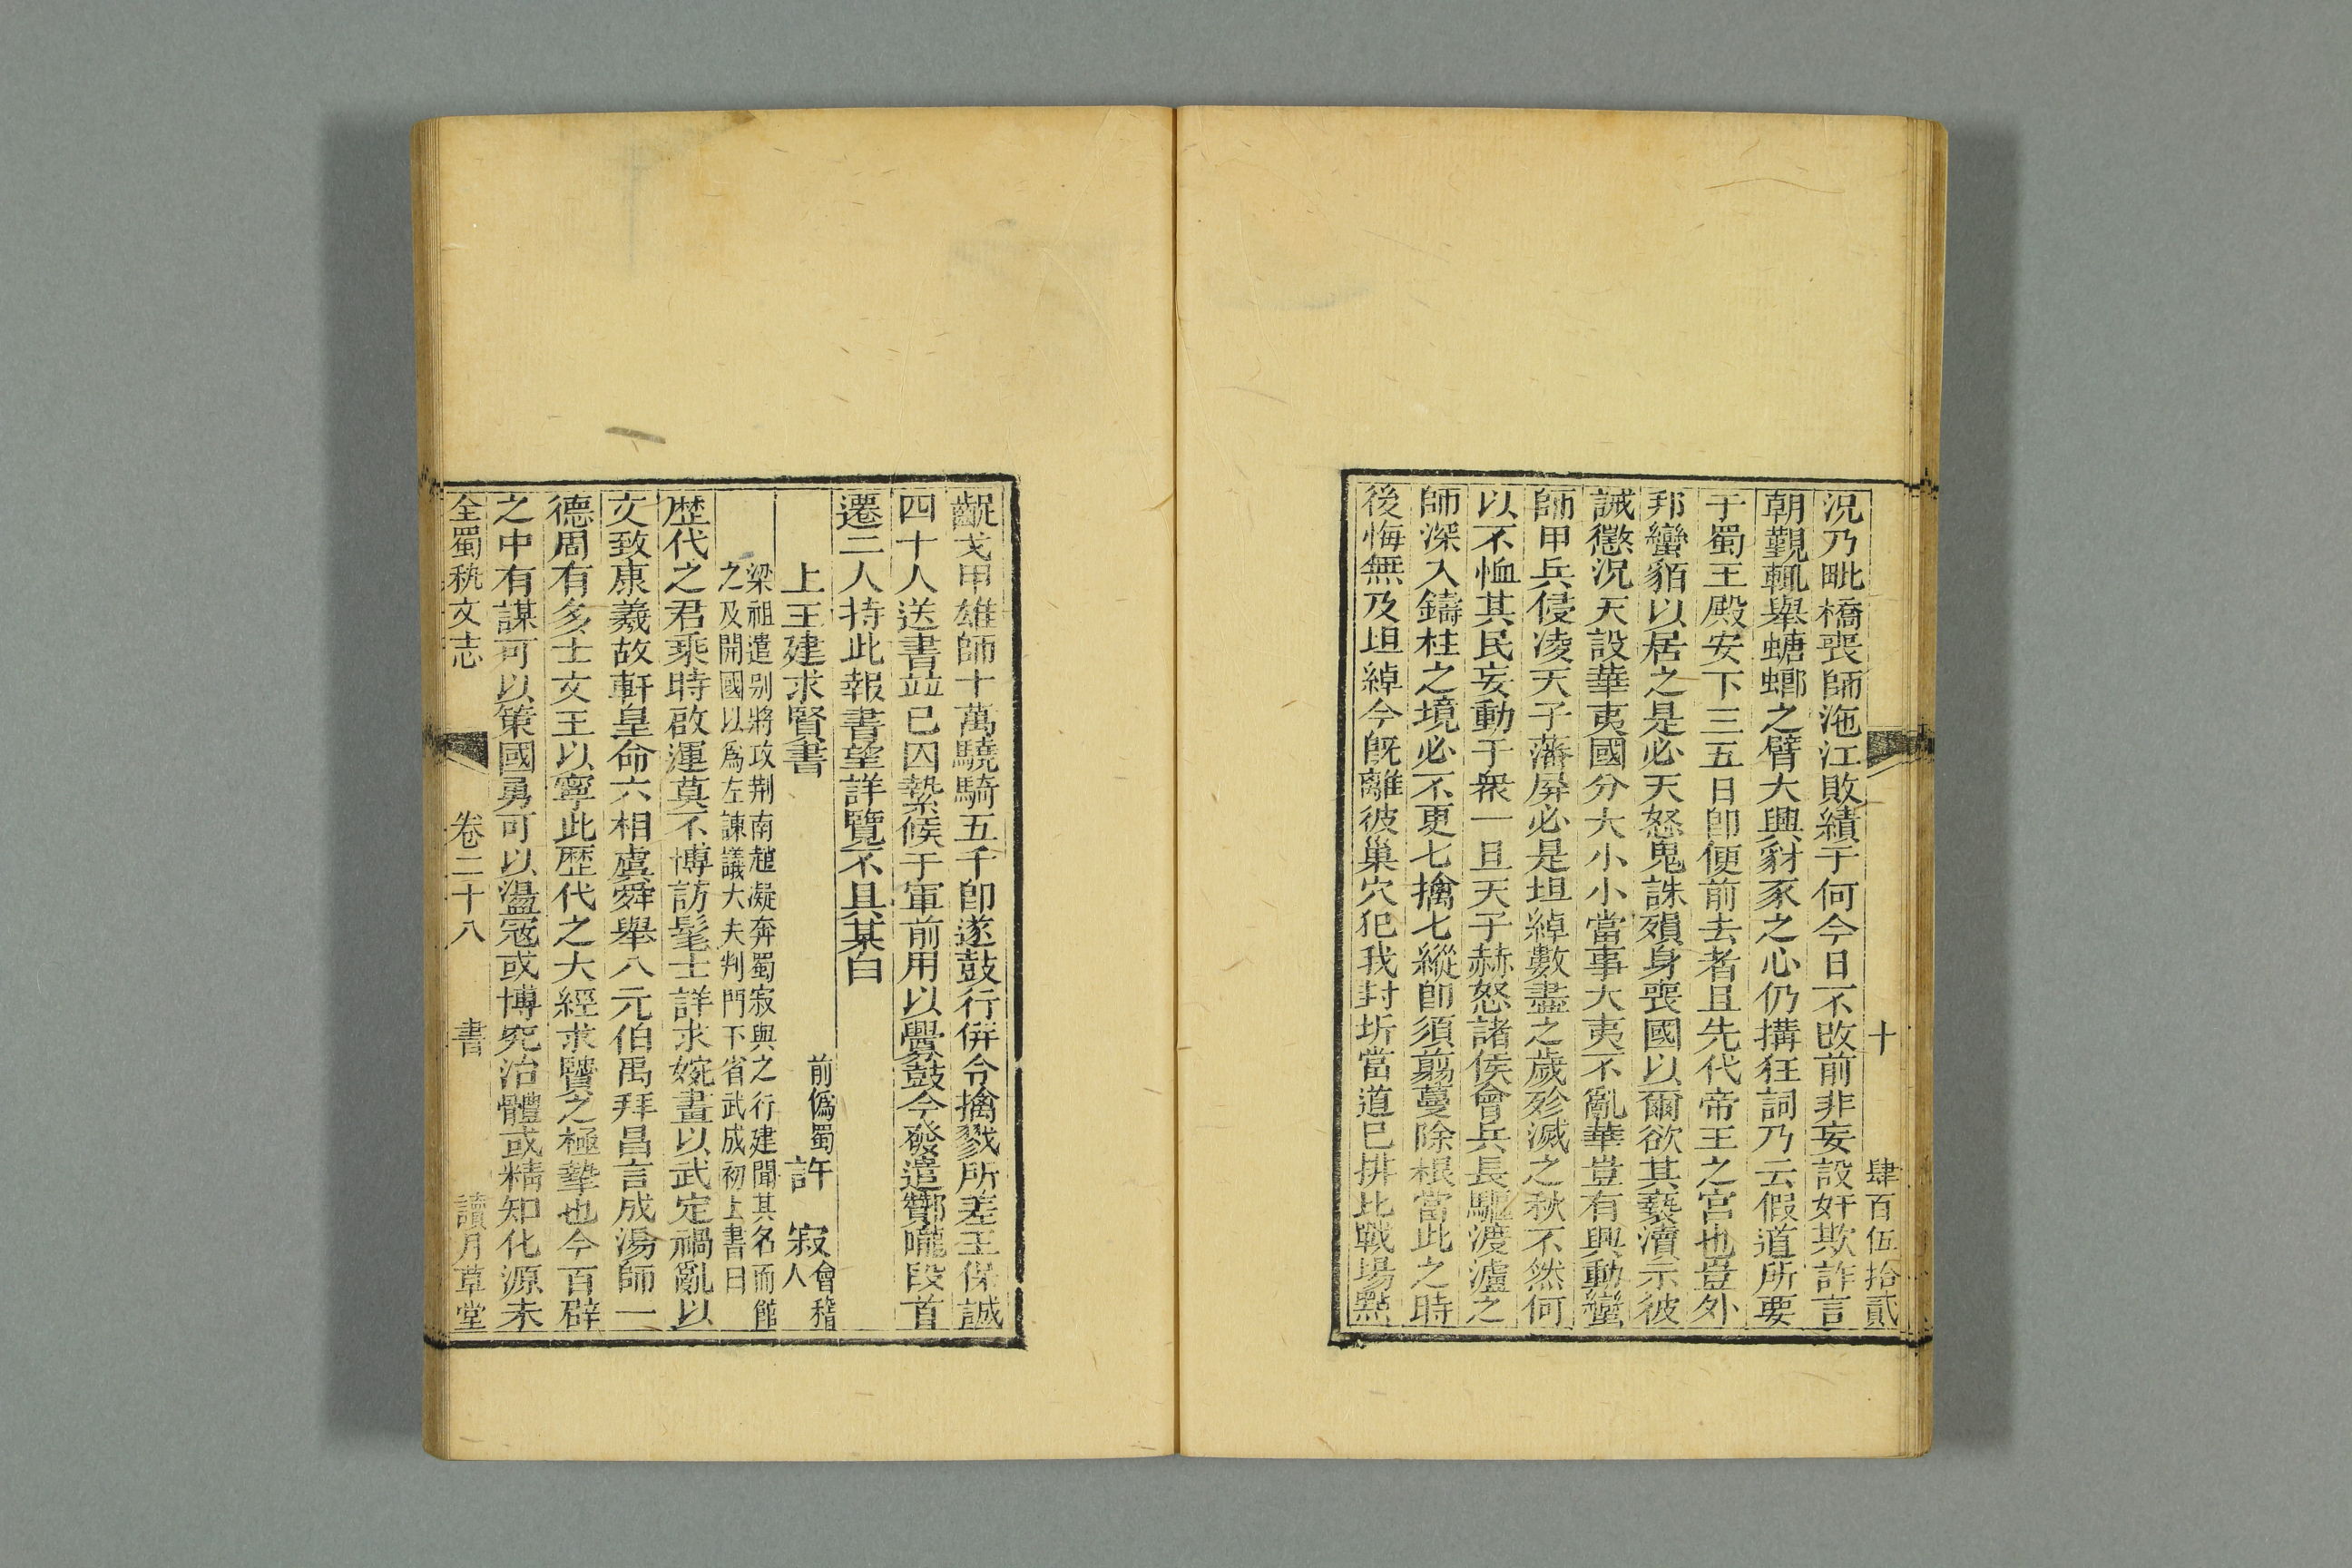 十　肆百伍拾貳
況乃毗橋喪師沲江敗績于何今日不改前非妄設奸欺詐言
朝覲輒舉螗螂之臂大興豺豕之心仍搆狂詞乃云假道所要
于蜀王殿安下三五日卽便前去者且先代帝王之宮也豈外
邦蠻貊以居之是必天怒鬼誅殞身喪國以爾欲其褻瀆示彼
誡懲況天設華夷國分大小小當事大夷不亂華豈有興動蠻
師甲兵侵凌天子藩屏必是坦綽數盡之歲殄滅之秋不然何
以不恤其民妄動于衆一旦天子赫怒諸侯會兵長驅渡瀘之
師深入鑄柱之境必不更七擒七縱卽須翦蔓除根當此之時
後悔無及坦綽今旣離彼巢穴犯我封圻當道已排比戰場點
齪戈甲雄師十萬驍騎五千卽遂鼓行併令擒戮所差王保誠
四十人送書竝已囚縶候于軍前用以釁鼓今發遣鄼嚨段首
遷二人持此報書望詳覽不具某白
上王建求賢書　前僞蜀許　寂會稽人
梁祖遣別將攻荆南趙凝奔蜀寂與之行建聞其名而館
之及開國以爲左諫議大夫判門下省武成初上書曰
歷代之君乘時啟運莫不博訪髦士詳求婉畫以武定禍亂以
文致康羲故軒皇命六相虞舜舉八元伯禹拜昌言成湯師一
德周有多士文王以寧此歷代之大經求賢之極摯也今百辟
之中有謀可以策國勇可以盪寇或博究治體或精知化源未
全蜀秇文志　卷二十八　書　讀月草堂